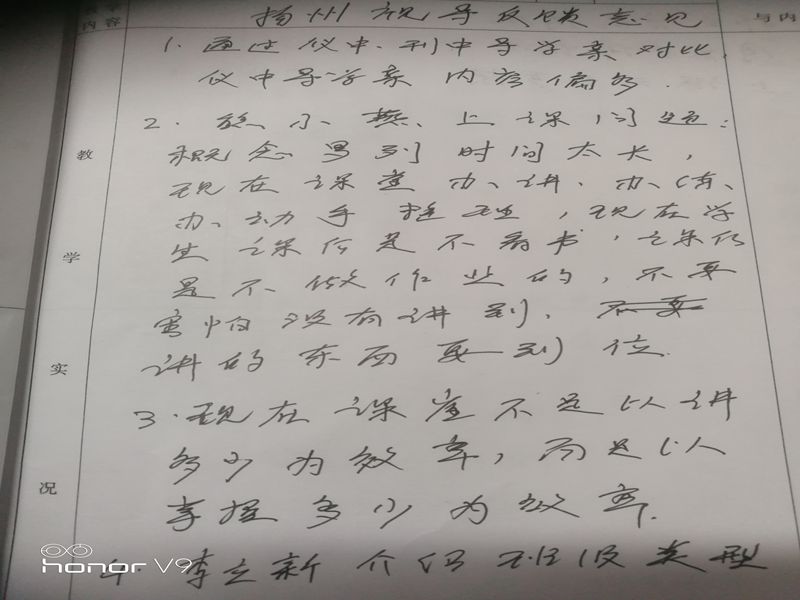 教学
内容
扬州视导反馈意见
与内
1. 通过仪中、刊中导学案对比,
仪中导学案内容偏多.
2. 施小燕上课问题:
概念写到时间太长,
现在课堂办、讲、办、
办、动手梳理, 现在学
生课后是不看书, 课后
是不做作业的, 不要
害怕没有讲到, 不要
讲的东西要到位.
3. 现在课堂不是以讲
多少为效率, 而是以
掌握多少为效率.
4. 李立新介绍班级类型
教
学
实
况
honor V9